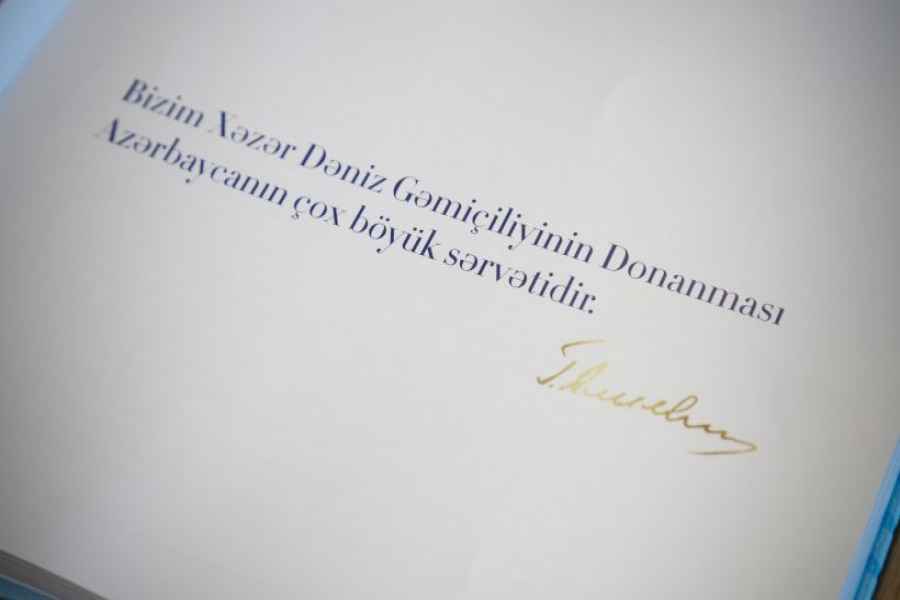 Bizim Xəzər Dəniz Gəmiçiliyinin Donanması
Azərbaycanın çox böyük sərvətidir.